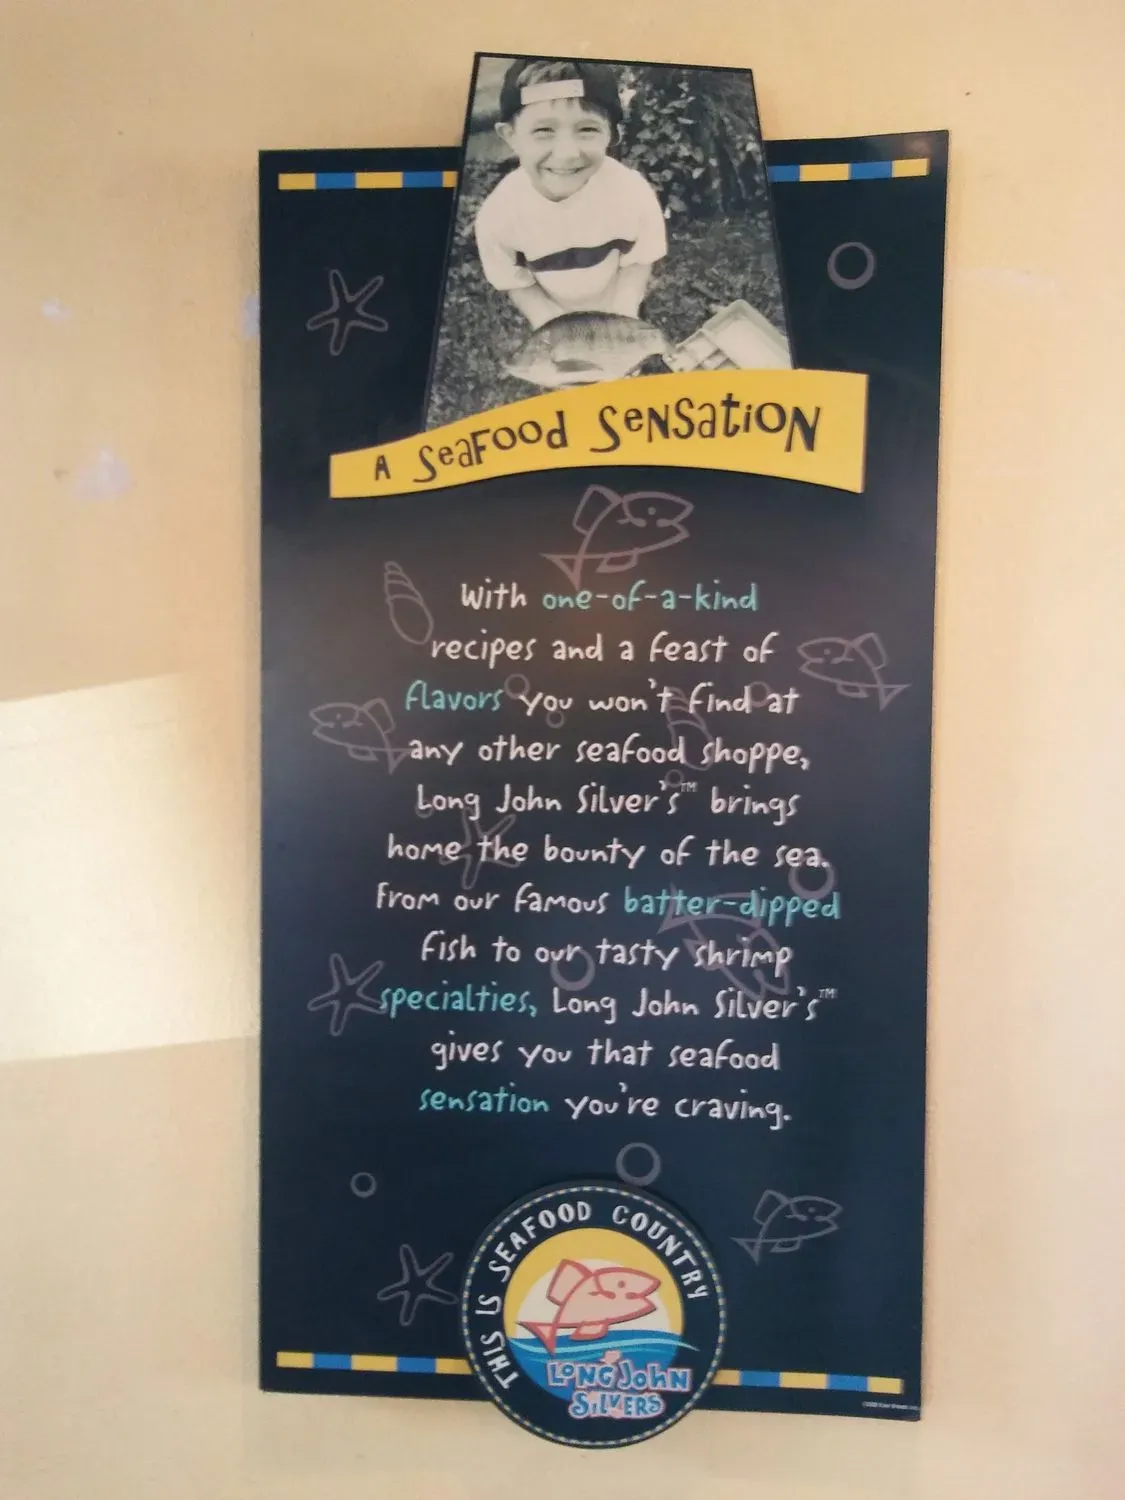 A Seafood Sensation
With one-of-a-kind
recipes and a feast of
flavors you won't find at
any other seafood shoppe,
Long John Silver's™ brings
home the bounty of the sea.
From our famous batter-dipped
fish to our tasty shrimp
specialties, Long John Silver's™
gives you that seafood
sensation you're craving.
THIS IS SEAFOOD COUNTRY
LONG JOHN
SILVERS